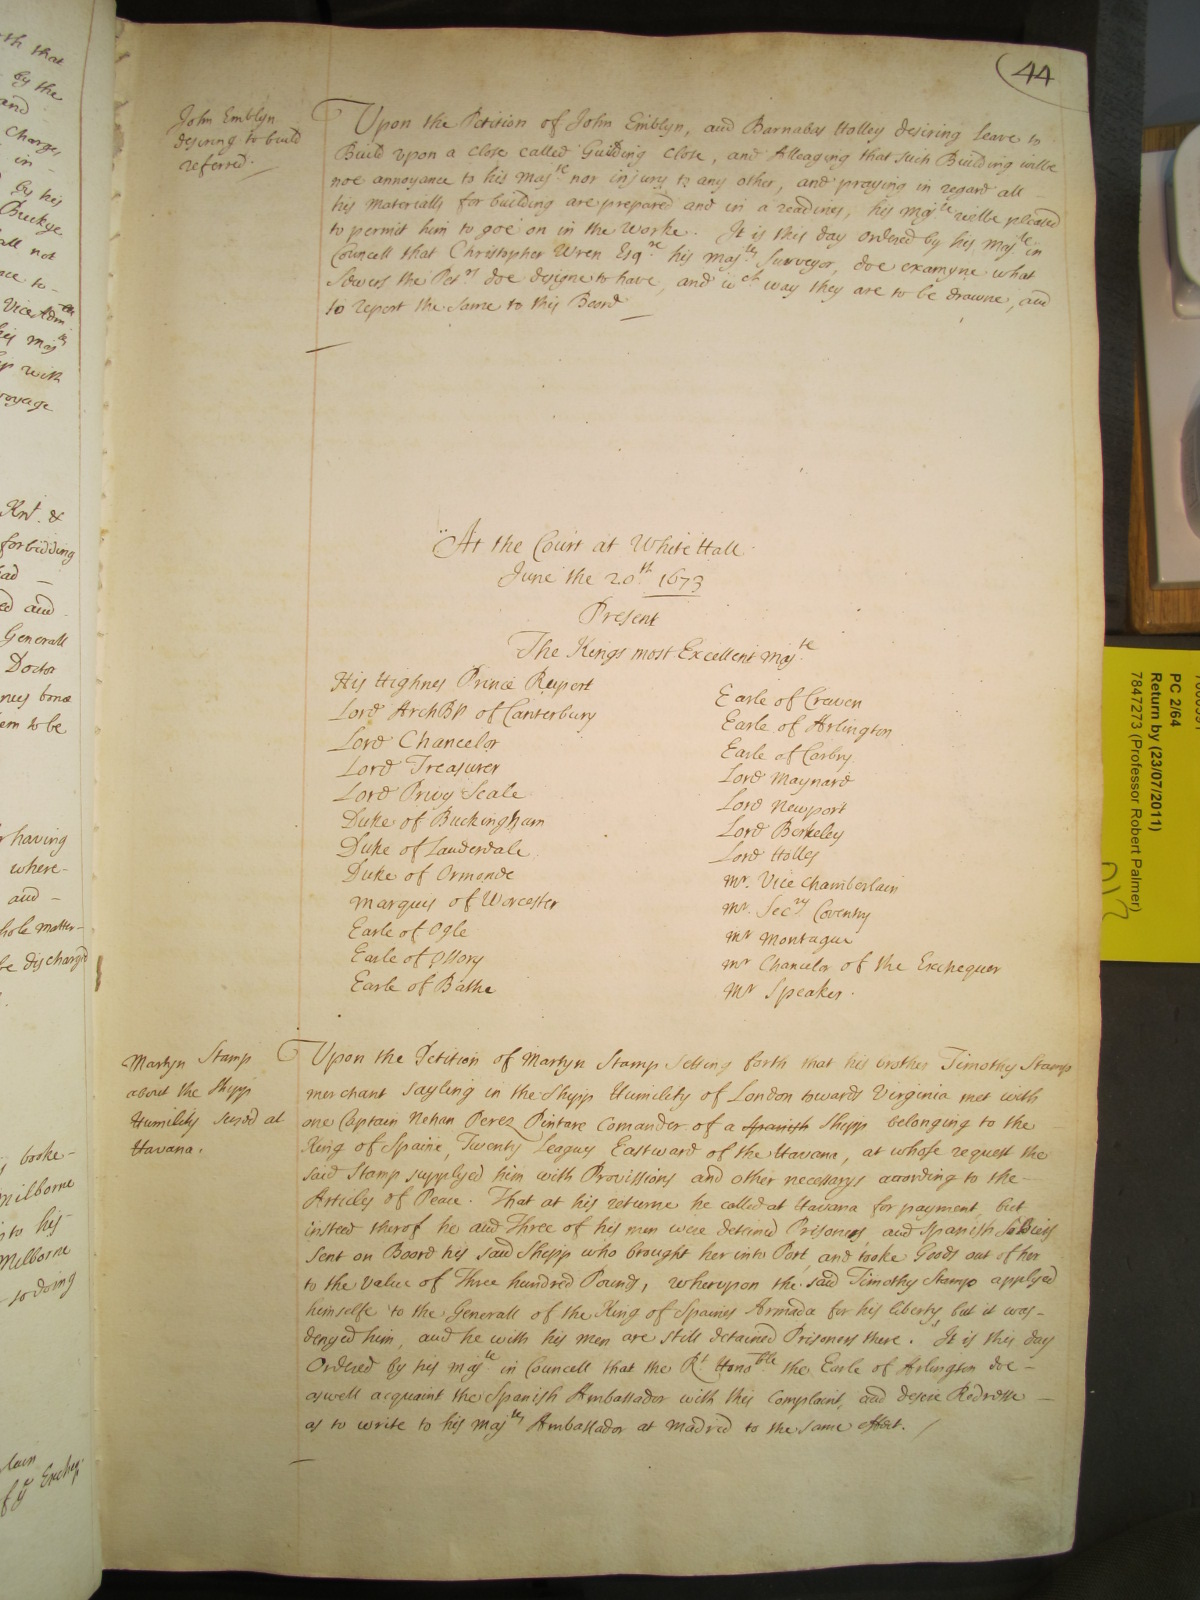 44
John Emblyn
desiring to build
referred.
Upon the Petition of John Emblyn, and Barnabas Holley desiring leave to
Build upon a Close called Guilding Close, and Alleaging that such Building wilbe
noe annoyance to his Maj.te nor injury to any other, and praying in regard all
his Materialls for building are prepared and in a readines, his Maj.te wilbe pleased
to permit him to goe on in the Worke. It is this day ordered by his Maj.te in
Councell that Christopher Wren Esq.re his Maj.ts Surveyor, doe examyne what
Sewers the Pet.rs doe designe to have, and w.ch way they are to be drawne, and
to report the same to this Board
At the Court at WhiteHall
June the 20.th 1673
Present
The Kings most Excellent Maj.te
His Highnes Prince Rupert
Lord ArchBP of Canterbury
Lord Chancelor
Lord Treasurer
Lord Privy Seale
Duke of Buckingham
Duke of Lauderdale
Duke of Ormonde
Marquis of Worcester
Earle of Ogle
Earle of Ossory
Earle of Bathe
Earle of Craven
Earle of Arlington
Earle of Carbry
Lord Maynard
Lord Newport
Lord Berkeley
Lord Holles
Mr. Vice Chamberlain
Mr. Sec.ry Coventry
Mr Montague
Mr Chancelor of the Exchequer
Mr Speaker.
Martyn Stamp
about the Shipp
Humility seized at
Havana.
Upon the Petition of Martyn Stamp setting forth that his brother Timothy Stamp
Merchant sayling in the Shipp Humility of London towards Virginia met with
one Captain Nehan Perez Pintare Comander of a Spanish Shipp belonging to the
King of Spaine, Twenty Leagues Eastward of the Havana, at whose request the
said Stamp supplyed him with Provissions and other necessarys according to the
Articles of Peace. That at his returne he called at Havana for payment, but
insteed therof he and Three of his men were detained Prisoners, and Spanish Soldiers
sent on Board his said Shipp who brought her into Port, and tooke Goods out of her
to the value of Three hundred Pounds, wherupon the said Timothy Stamp applyed
himselfe to the Generall of the King of Spaines Armada for his liberty but it was
denyed him, and he with his men are still detained Prisoners there. It is this day
Ordered by his Maj.te in Councell that the R.t Hono.ble the Earle of Arlington doe
aswell acquaint the Spanish Ambassador with this Complaint, and desire Redresse
as to write to his Maj.ts Ambassador at Madrid to the same effect.
PC 2/64
Return by (23/07/2011)
7847273 (Professor Robert Palmer)
th that
by the
and
Charges
in
by his
all not
Vice Adm.
his Maj.ts
with
voyage
Knt. &
forbidding
ed and
Generall
Doctor
em to be
having
where-
and -
hole matter-
be discharged
booke-
Milborne
into his
Milborne
so doing